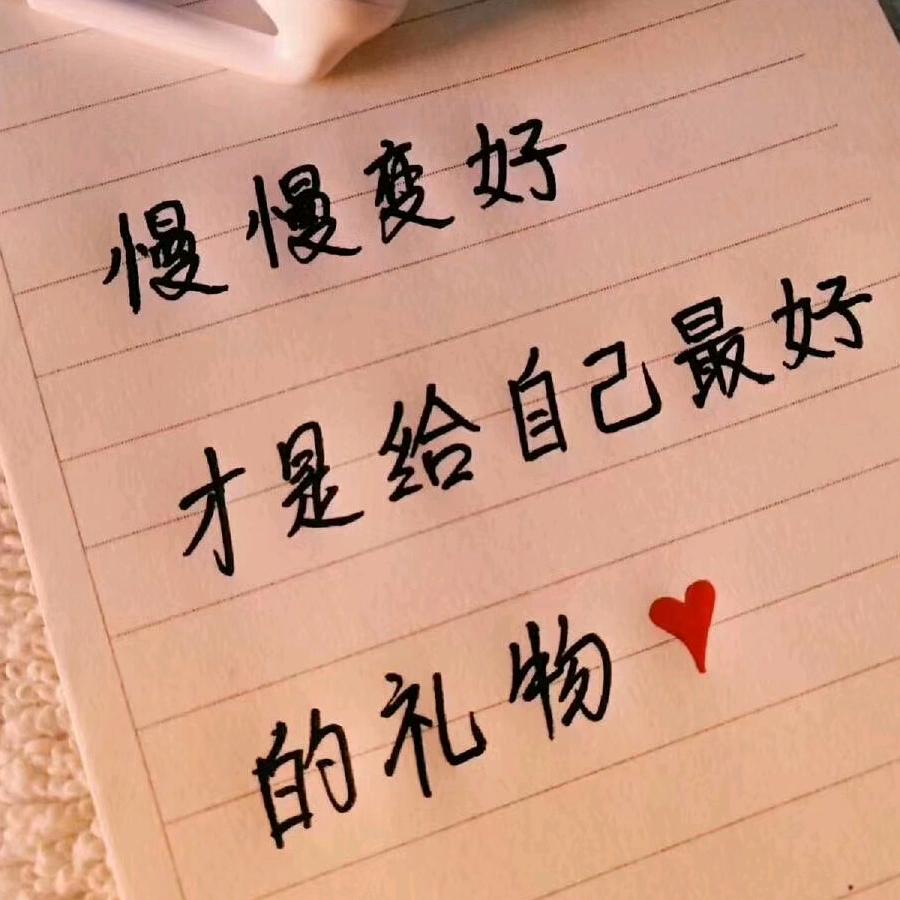 慢慢变好
才是给自己最好
的礼物